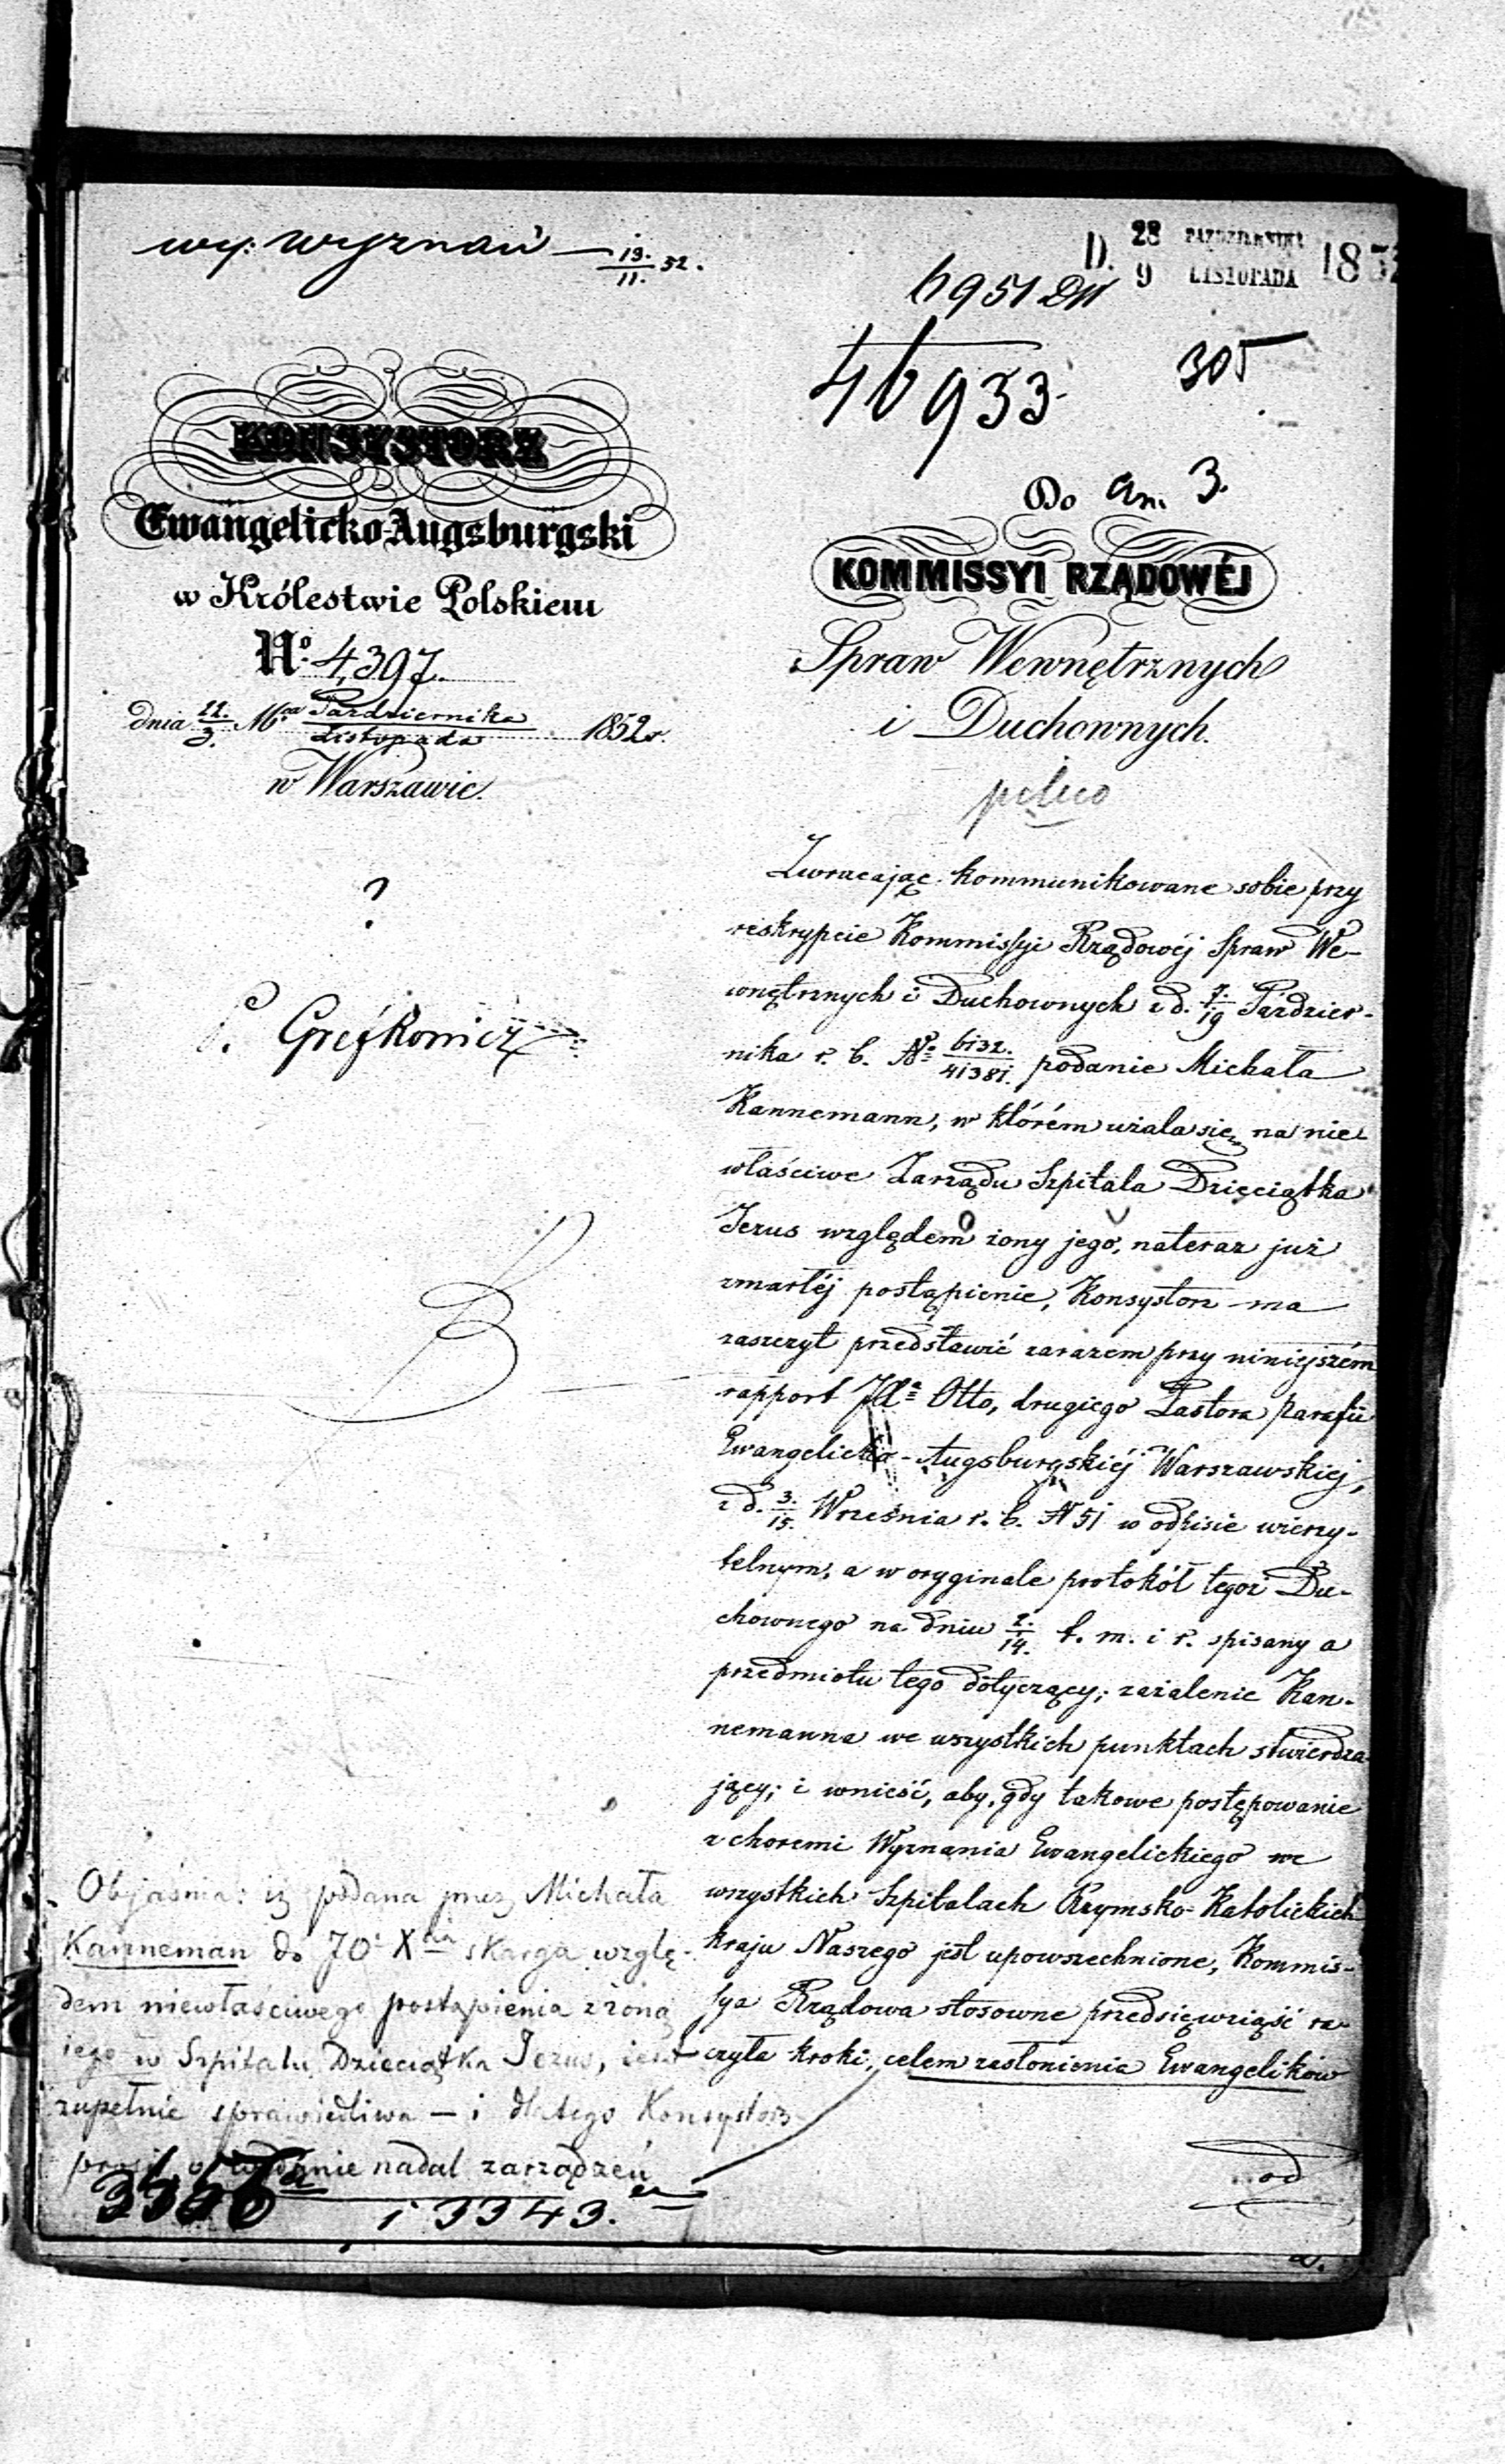 wy: wyznań 19./11. 52.
D. 28 PAŹDZIERNIKA / 9 LISTOPADA 1852
6951
46933
305
KONSYSTORZ
Ewangelicko Augsburgski
w Królestwie Polskiem
No. 4,397.
dnia 22./3. Mca Października/Listopada 1852 r.
w Warszawie.
?
P. Grefkowicz
Do
3.
KOMMISSYI RZĄDOWÉJ
Spraw Wewnętrznych
i Duchownych.
Zwracając kommunikowane sobie przy
reskrypcie Kommissyi Rządowéj Spraw We-
wnętrznych i Duchownych z d. 7./19 Paździer-
nika r. b. No. 6132./41381. podanie Michała
Kannemann, w którém użala się na nie-
właściwe Zarządu Szpitala Dzięciątka
Jezus względem żony jego, nateraz już
zmarłéj postąpienie, Konsystorz ma
zaszczyt przedstawić zarazem przy niniejszém
rapport Otto, drugiego Pastora Parafii
Ewangelicko-Augsburgskiéj Warszawskiej,
z d. 3./15. Września r. b. N 51 w odpisie wierzy-
telnym, a w oryginale protokół tegoż Du-
chownego na dniu 2./14. t. m. i r. spisany a
przedmiotu tego dotyczący; zażalenie Kan-
nemanna we wszystkich punktach stwierdza-
jący; i wnieść, aby, gdy takowe postępowanie
z choremi Wyznania Ewangelickiego we
wszystkich Szpitalach Rzymsko-Katolickich
kraju Naszego jest upowszechnione, Kommis-
sya Rządowa stosowne przedsięwziąść ra-
czyła kroki, celem zasłonienia Ewangelików
od
Objaśnia: iż podana przez Michała
Kanneman do JO: Xcia skarga wzglę-
dem niewłaściwego postąpienia z żoną
iego w Szpitalu Dzieciątka Jezus, iest
zupełnie sprawiedliwa — i dlatego Konsystorz
prosi o wydanie nadal zarządzeń
i 3343.